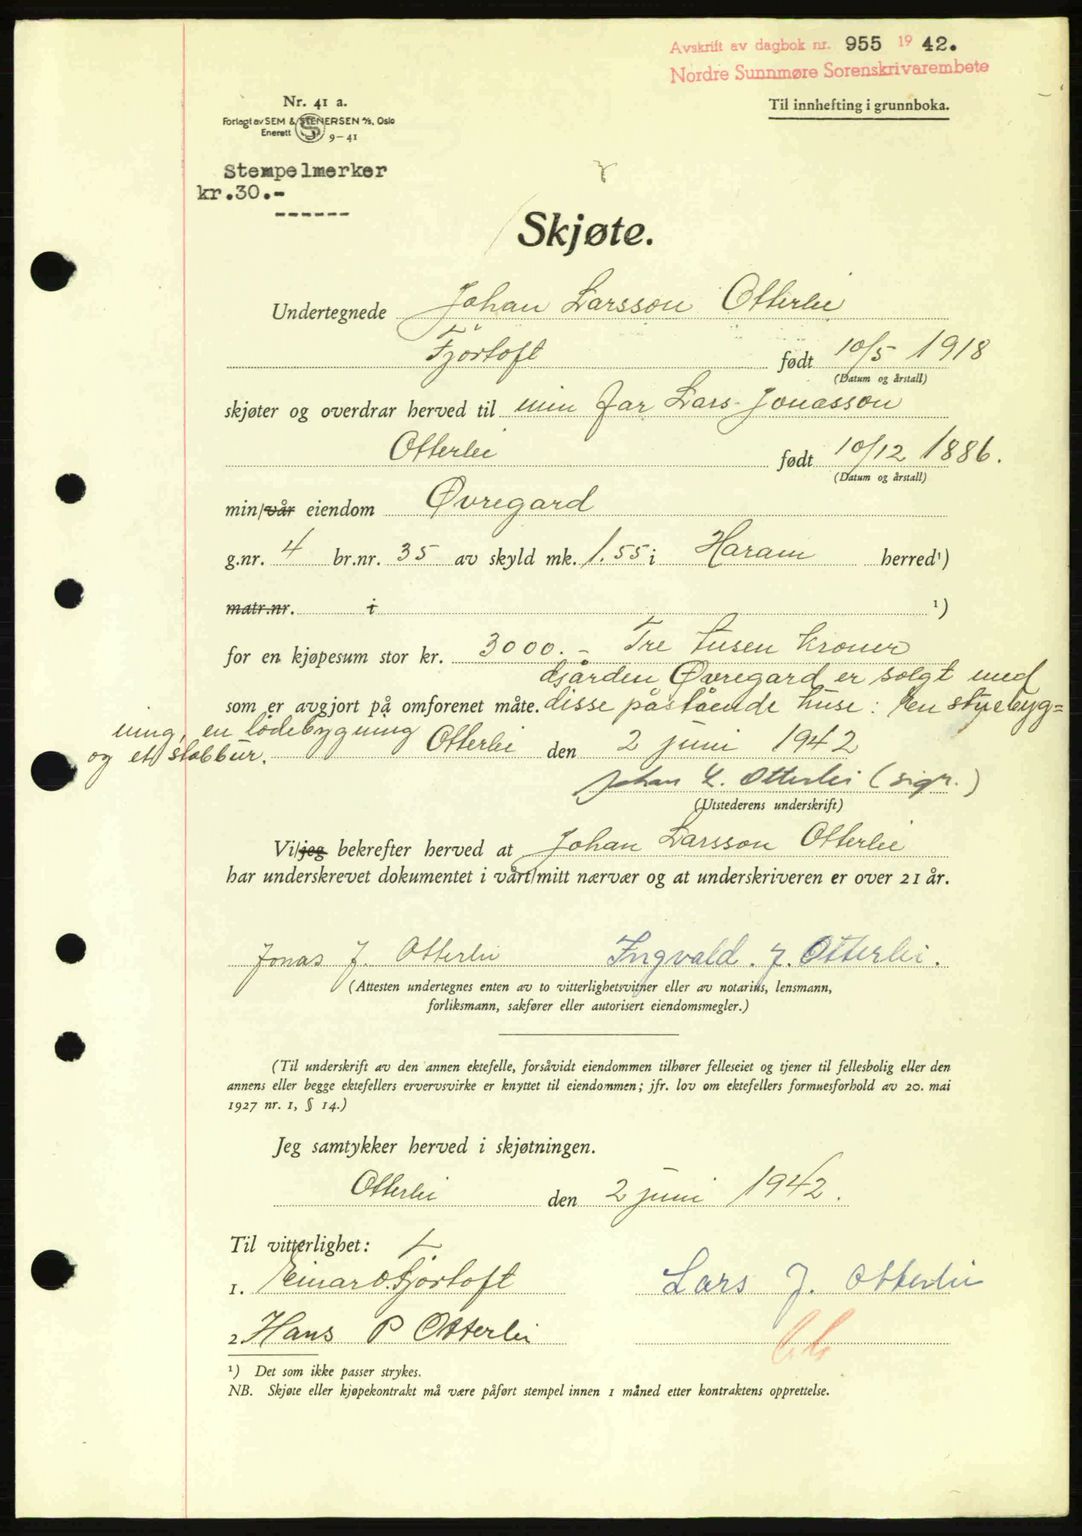 Avskrift av dagbok nr. 955 19 42.
Nordre Sunnmøre Sorenskrivarembete
Til innhefting i grunnboka.
Nr. 41 a.
Forlagt av SEM & STENERSEN A/S, Oslo
Enerett S 9-41
Stempelmerker
kr.30.-
------
Skjøte.
Undertegnede Johan Larsson Otterlei
Fjørtoft født 10/5 1918
(Datum og årstall)
skjøter og overdrar herved til min far Lars Jonasson
Otterlei født 10/12 1886.
(Datum og årstall)
min/vår eiendom Øvregard
g.nr. 4 br.nr. 35 av skyld mk. 1.55 i Haram herred¹)
matr.nr. i ¹)
for en kjøpesum stor kr. 3000.- Tre tusen kroner
som er avgjort på omforenet måte. Gjården Øvregard er solgt med
disse påstående huse: En stuebyg=
ning, en lødebygning
og et stabbur. Otterlei den 2 juni 1942
Johan L. Otterlei (sign.)
(Utstederens underskrift)
Vi/jeg bekrefter herved at Johan Larsson Otterlei
har underskrevet dokumentet i vårt/mitt nærvær og at underskriveren er over 21 år.
Jonas J. Otterlei Ingvald. J. Otterlei.
(Attesten undertegnes enten av to vitterlighetsvitner eller av notarius, lensmann,
forliksmann, sakfører eller autorisert eiendomsmegler.)
(Til underskrift av den annen ektefelle, forsåvidt eiendommen tilhører felleseiet og tjener til fellesbolig eller den
annens eller begge ektefellers ervervsvirke er knyttet til eiendommen; jfr. lov om ektefellers formuesforhold av 20. mai
1927 nr. 1, § 14.)
Jeg samtykker herved i skjøtningen.
Otterlei den 2 juni 1942.
Til vitterlighet:
1. Einar O. Fjørtoft Lars J. Otterlei
2. Hans P Otterlei
¹) Det som ikke passer strykes.
NB. Skjøte eller kjøpekontrakt må være påført stempel innen 1 måned etter kontraktens opprettelse.